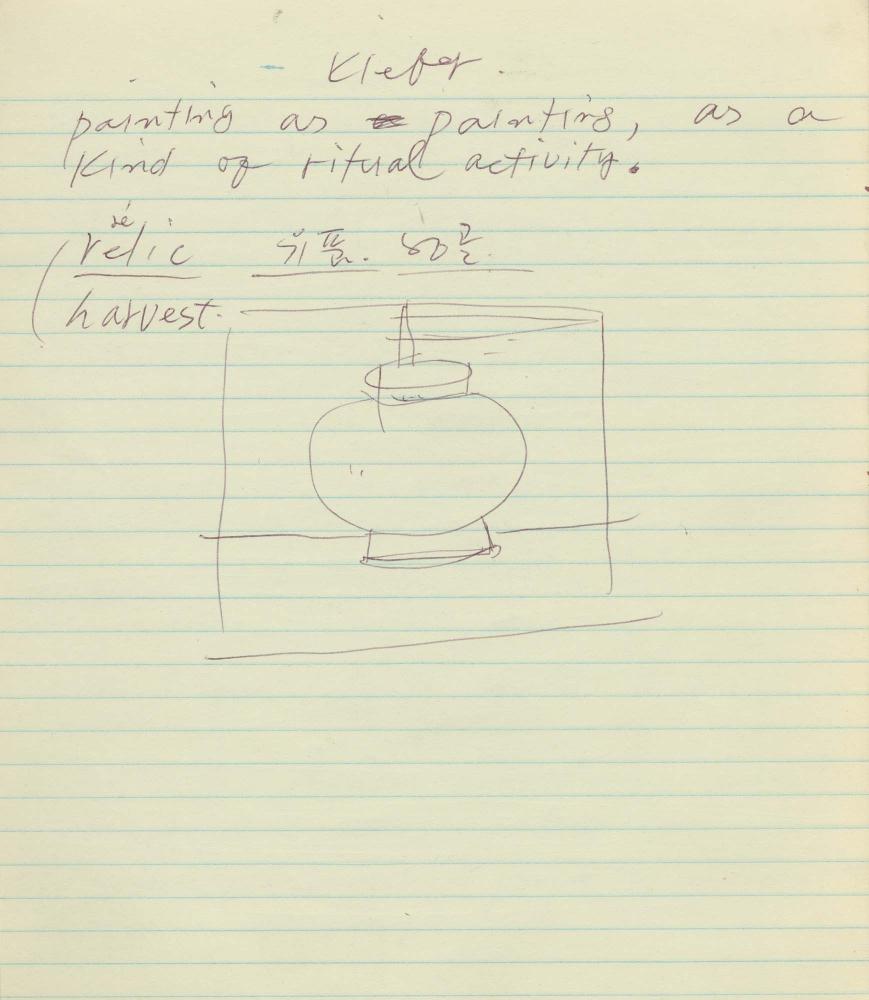 - Kiefer.
painting as painting, as a
Kind of ritual activity.
ré
relic 유품. 유골.
harvest.